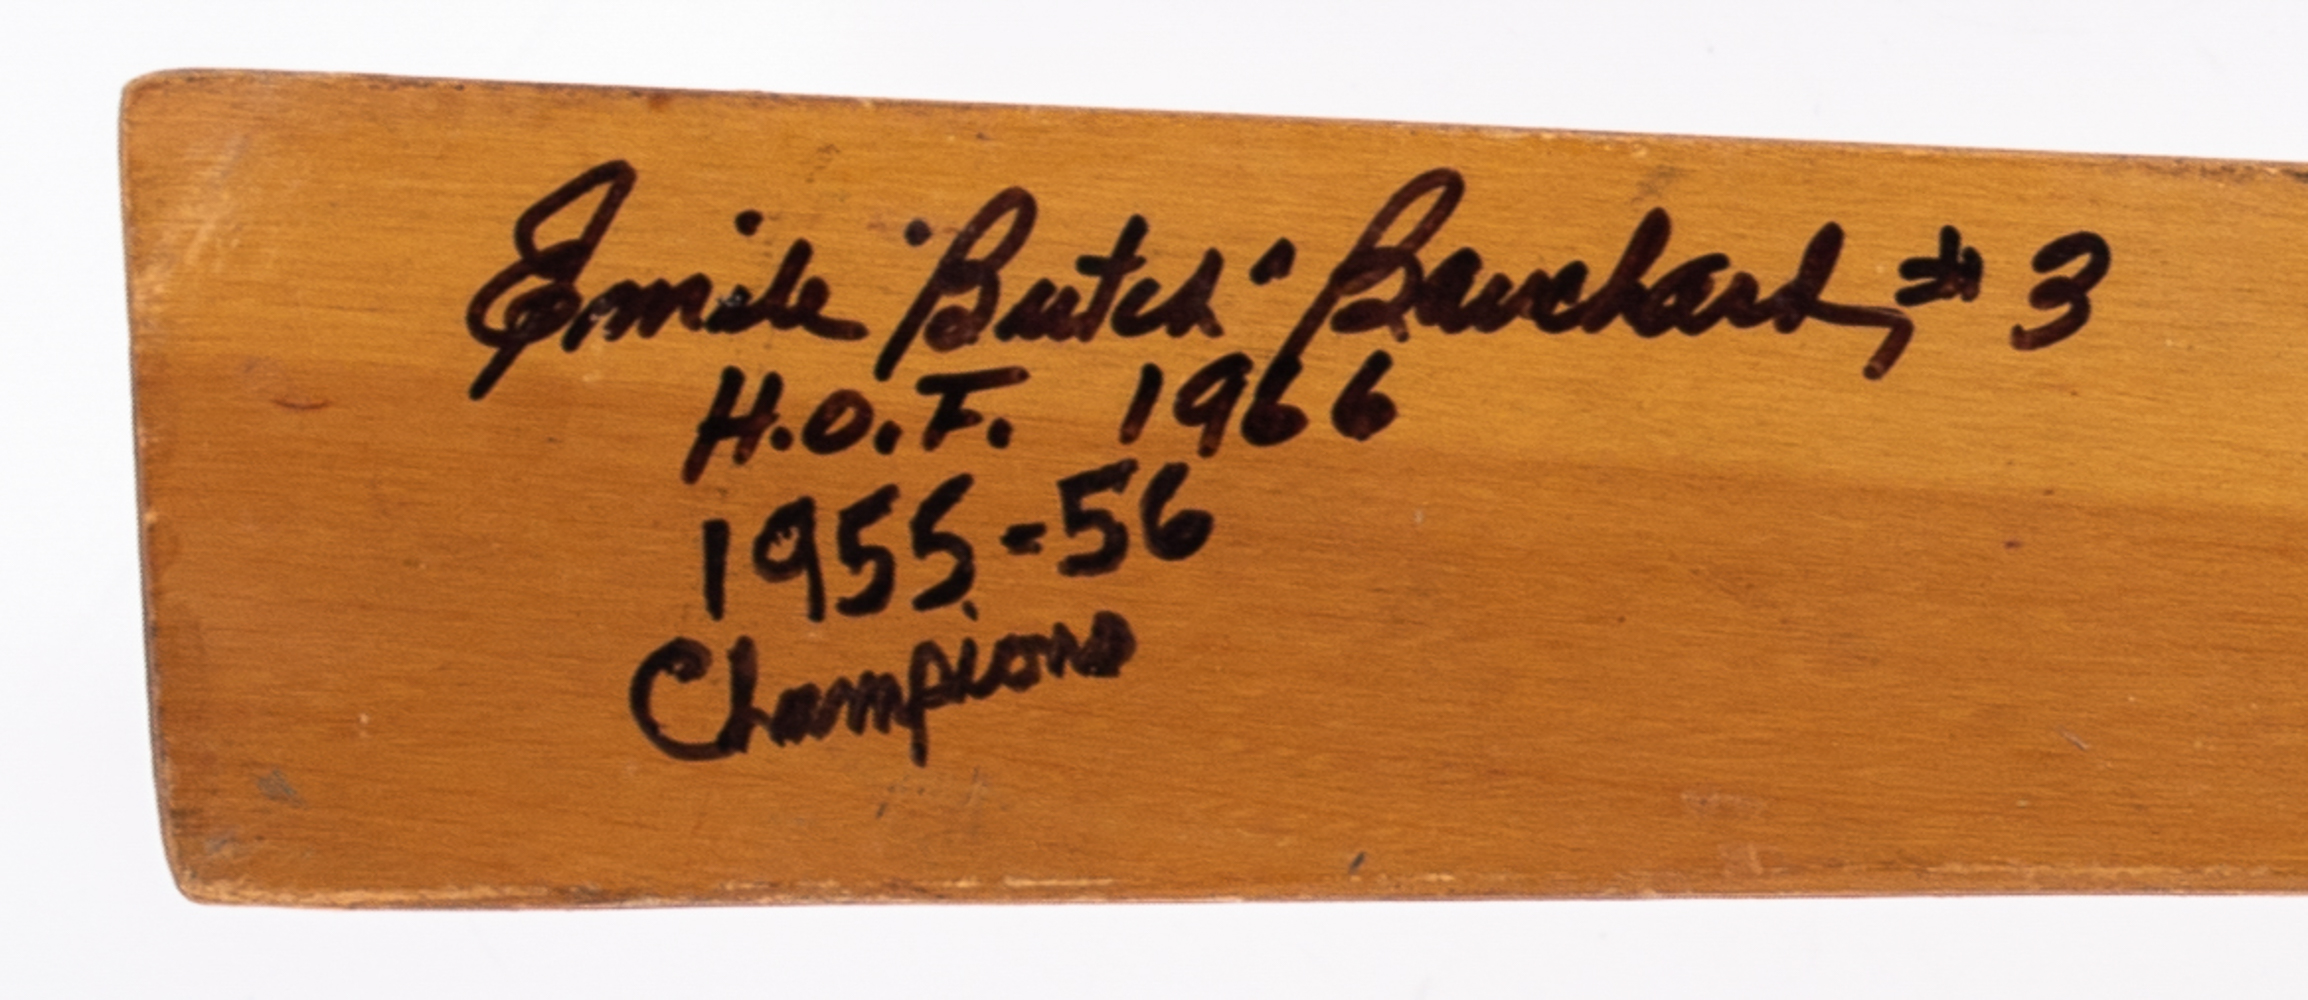 Emile "Butch" Bouchard, #3
H.O.F. 1966
1955-56
Champions